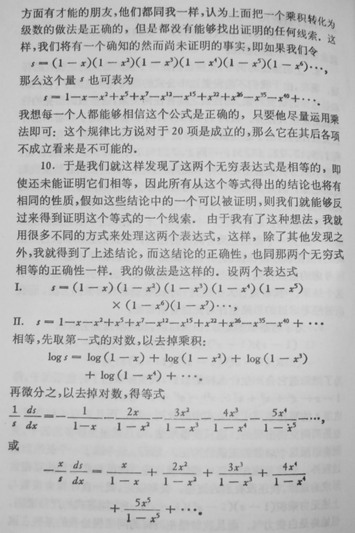 方面有才能的朋友,他们都同我一样,认为上面把一个乘积转化为
级数的做法是正确的,但是都没有能够找出证明的任何线索。这
样,我们将有一个确知的然而尚未证明的事实,即如果我们令
s=(1-x)(1-x²)(1-x³)(1-x⁴)(1-x⁵)(1-x⁶)⋯,
那么这个量 s 也可表为
s=1-x-x²+x⁵+x⁷-x¹²-x¹⁵+x²²+x²⁶-x³⁵-x⁴⁰+⋯.
我想每一个人都能够相信这个公式是正确的,只要他尽量运用乘
法即可:这个规律比方说对于20项是成立的,那么它在其后各项
不成立看来是不可能的。
10. 于是我们就这样发现了这两个无穷表达式是相等的,即
使还未能证明它们相等,因此所有从这个等式得出的结论也将有
相同的性质,假如这些结论中的一个可以被证明,则我们就能够反
过来得到证明这个等式的一个线索. 由于我有了这种想法,我就
用很多不同的方式来处理这两个表达式,这样,除了其他发现之
外,我就得到了上述结论,而这结论的正确性,也同那两个无穷式
相等的正确性一样。我的做法是这样的. 设两个表达式
I. s=(1-x)(1-x²)(1-x³)(1-x⁴)(1-x⁵)
×(1-x⁶)(1-x⁷)⋯,
II. s=1-x-x²+x⁵+x⁷-x¹²-x¹⁵+x²²+x²⁶-x³⁵-x⁴⁰+⋯
相等,先取第一式的对数,以去掉乘积:
log s=log(1-x)+log(1-x²)+log(1-x³)
+log(1-x⁴)+⋯,
再微分之,以去掉对数,得等式
1/s ds/dx=-1/(1-x)-2x/(1-x²)-3x²/(1-x³)-4x³/(1-x⁴)-5x⁴/(1-x⁵)-⋯,
或
-x/s ds/dx=x/(1-x)+2x²/(1-x²)+3x³/(1-x³)+4x⁴/(1-x⁴)
+5x⁵/(1-x⁵)+⋯.